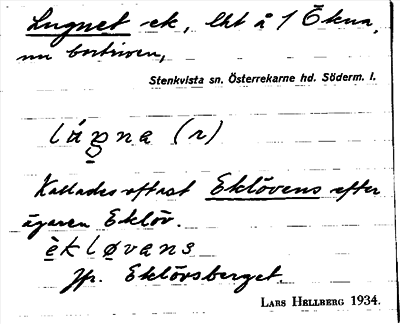 Lugnet ek, lht å 1 Ökna,
nu bortriven,
Stenkvista sn. Österrekarne hd. Söderm. l.
(r)
Kallades oftast Eklövens efter
ägaren Eklöv.
èkløvans
Jfr. Eklövsberget.
LARS HELLBERG 1934.